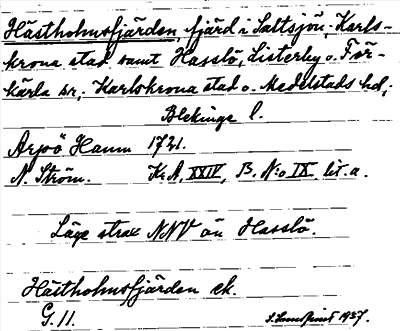 Hästholmsfjärden, fjärd i Saltsjön, Karls-
krona stad samt Hasslö, Listerby o. För-
kärla sn, Karlskrona stad o. Medelstads hd,
Blekinge l.
Arpö Hamn 1721.
N. Ström. K.A. XXIV, B. N:o IX lit. a.
Läge strax NNV om Hasslö.
Hästholmsfjärden ek.
G. 11. 1927.